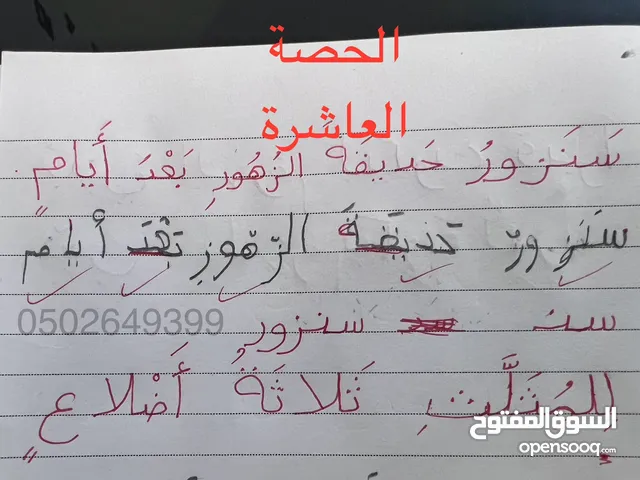 الحصة
العاشرة
سَنَزورُ حَديقَةَ الزُّهورِ بَعْدَ أَيامٍ.
سَنَزورُ حَديقَةَ الزّهورِ بَعْدَ أيامٍ
0502649399
سنـ سنزورُ
لِلمُثَلَّثِ ثَلاثَةُ أَضْلاعٍ
السوق المفتوح
opensooq.com